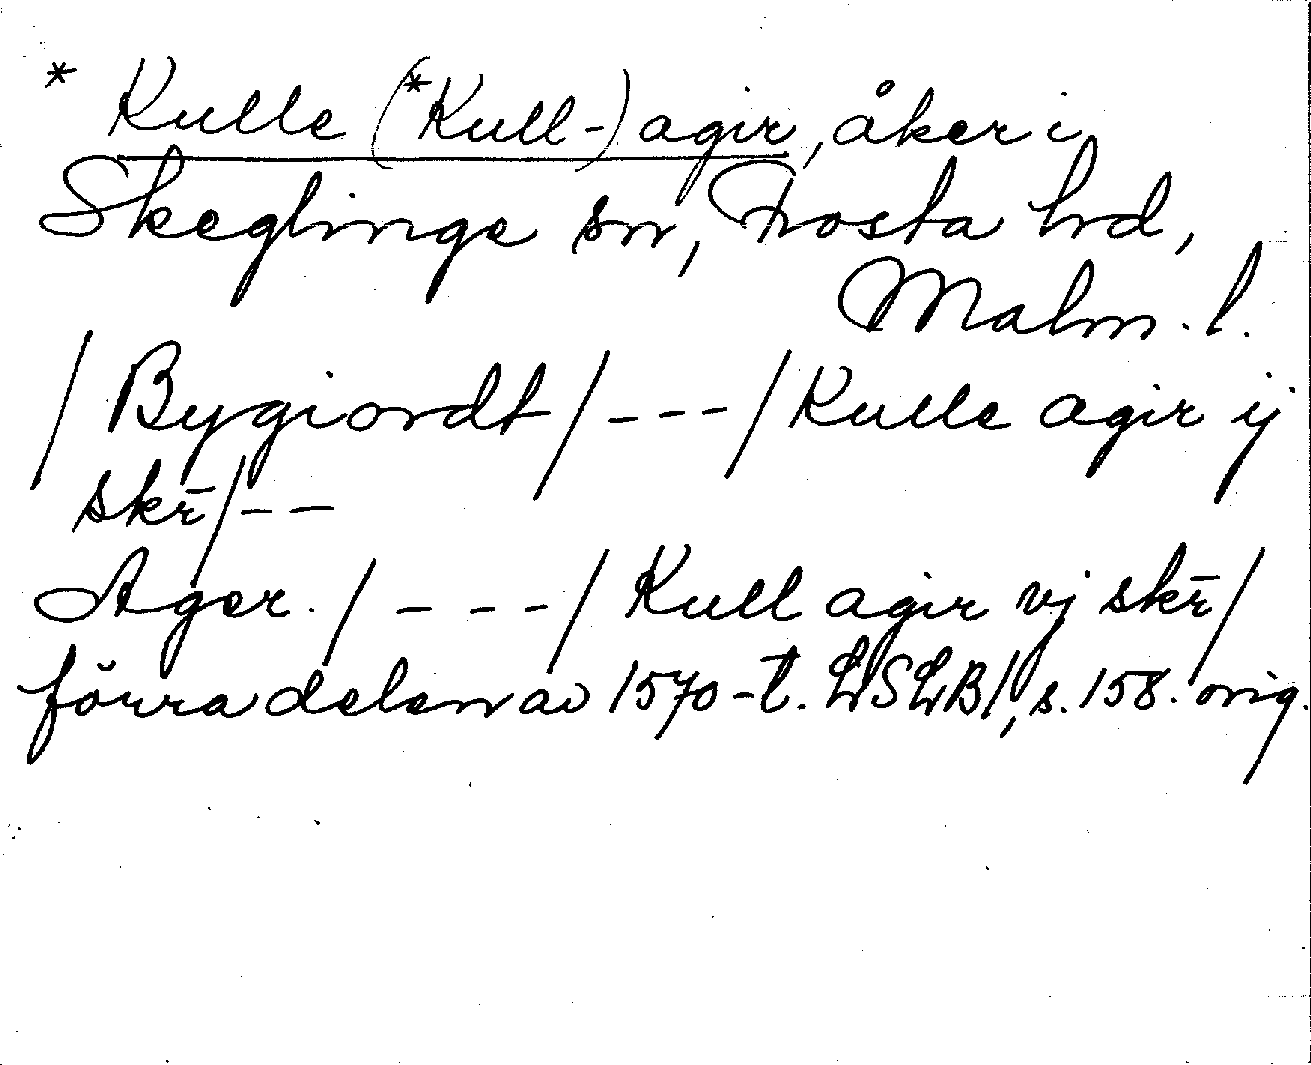 * Kulle (*Kull-) agir, åker i
Skeglinge sn, Frosta hd,
Malm. l.
/ Bygiordt / - - - / Kulle agir ij
skr̄ / - -
Ager. / - - - / Kull agir vj skr̄ /
förra delen av 1570-t. LSLB 1, s. 158. orig.